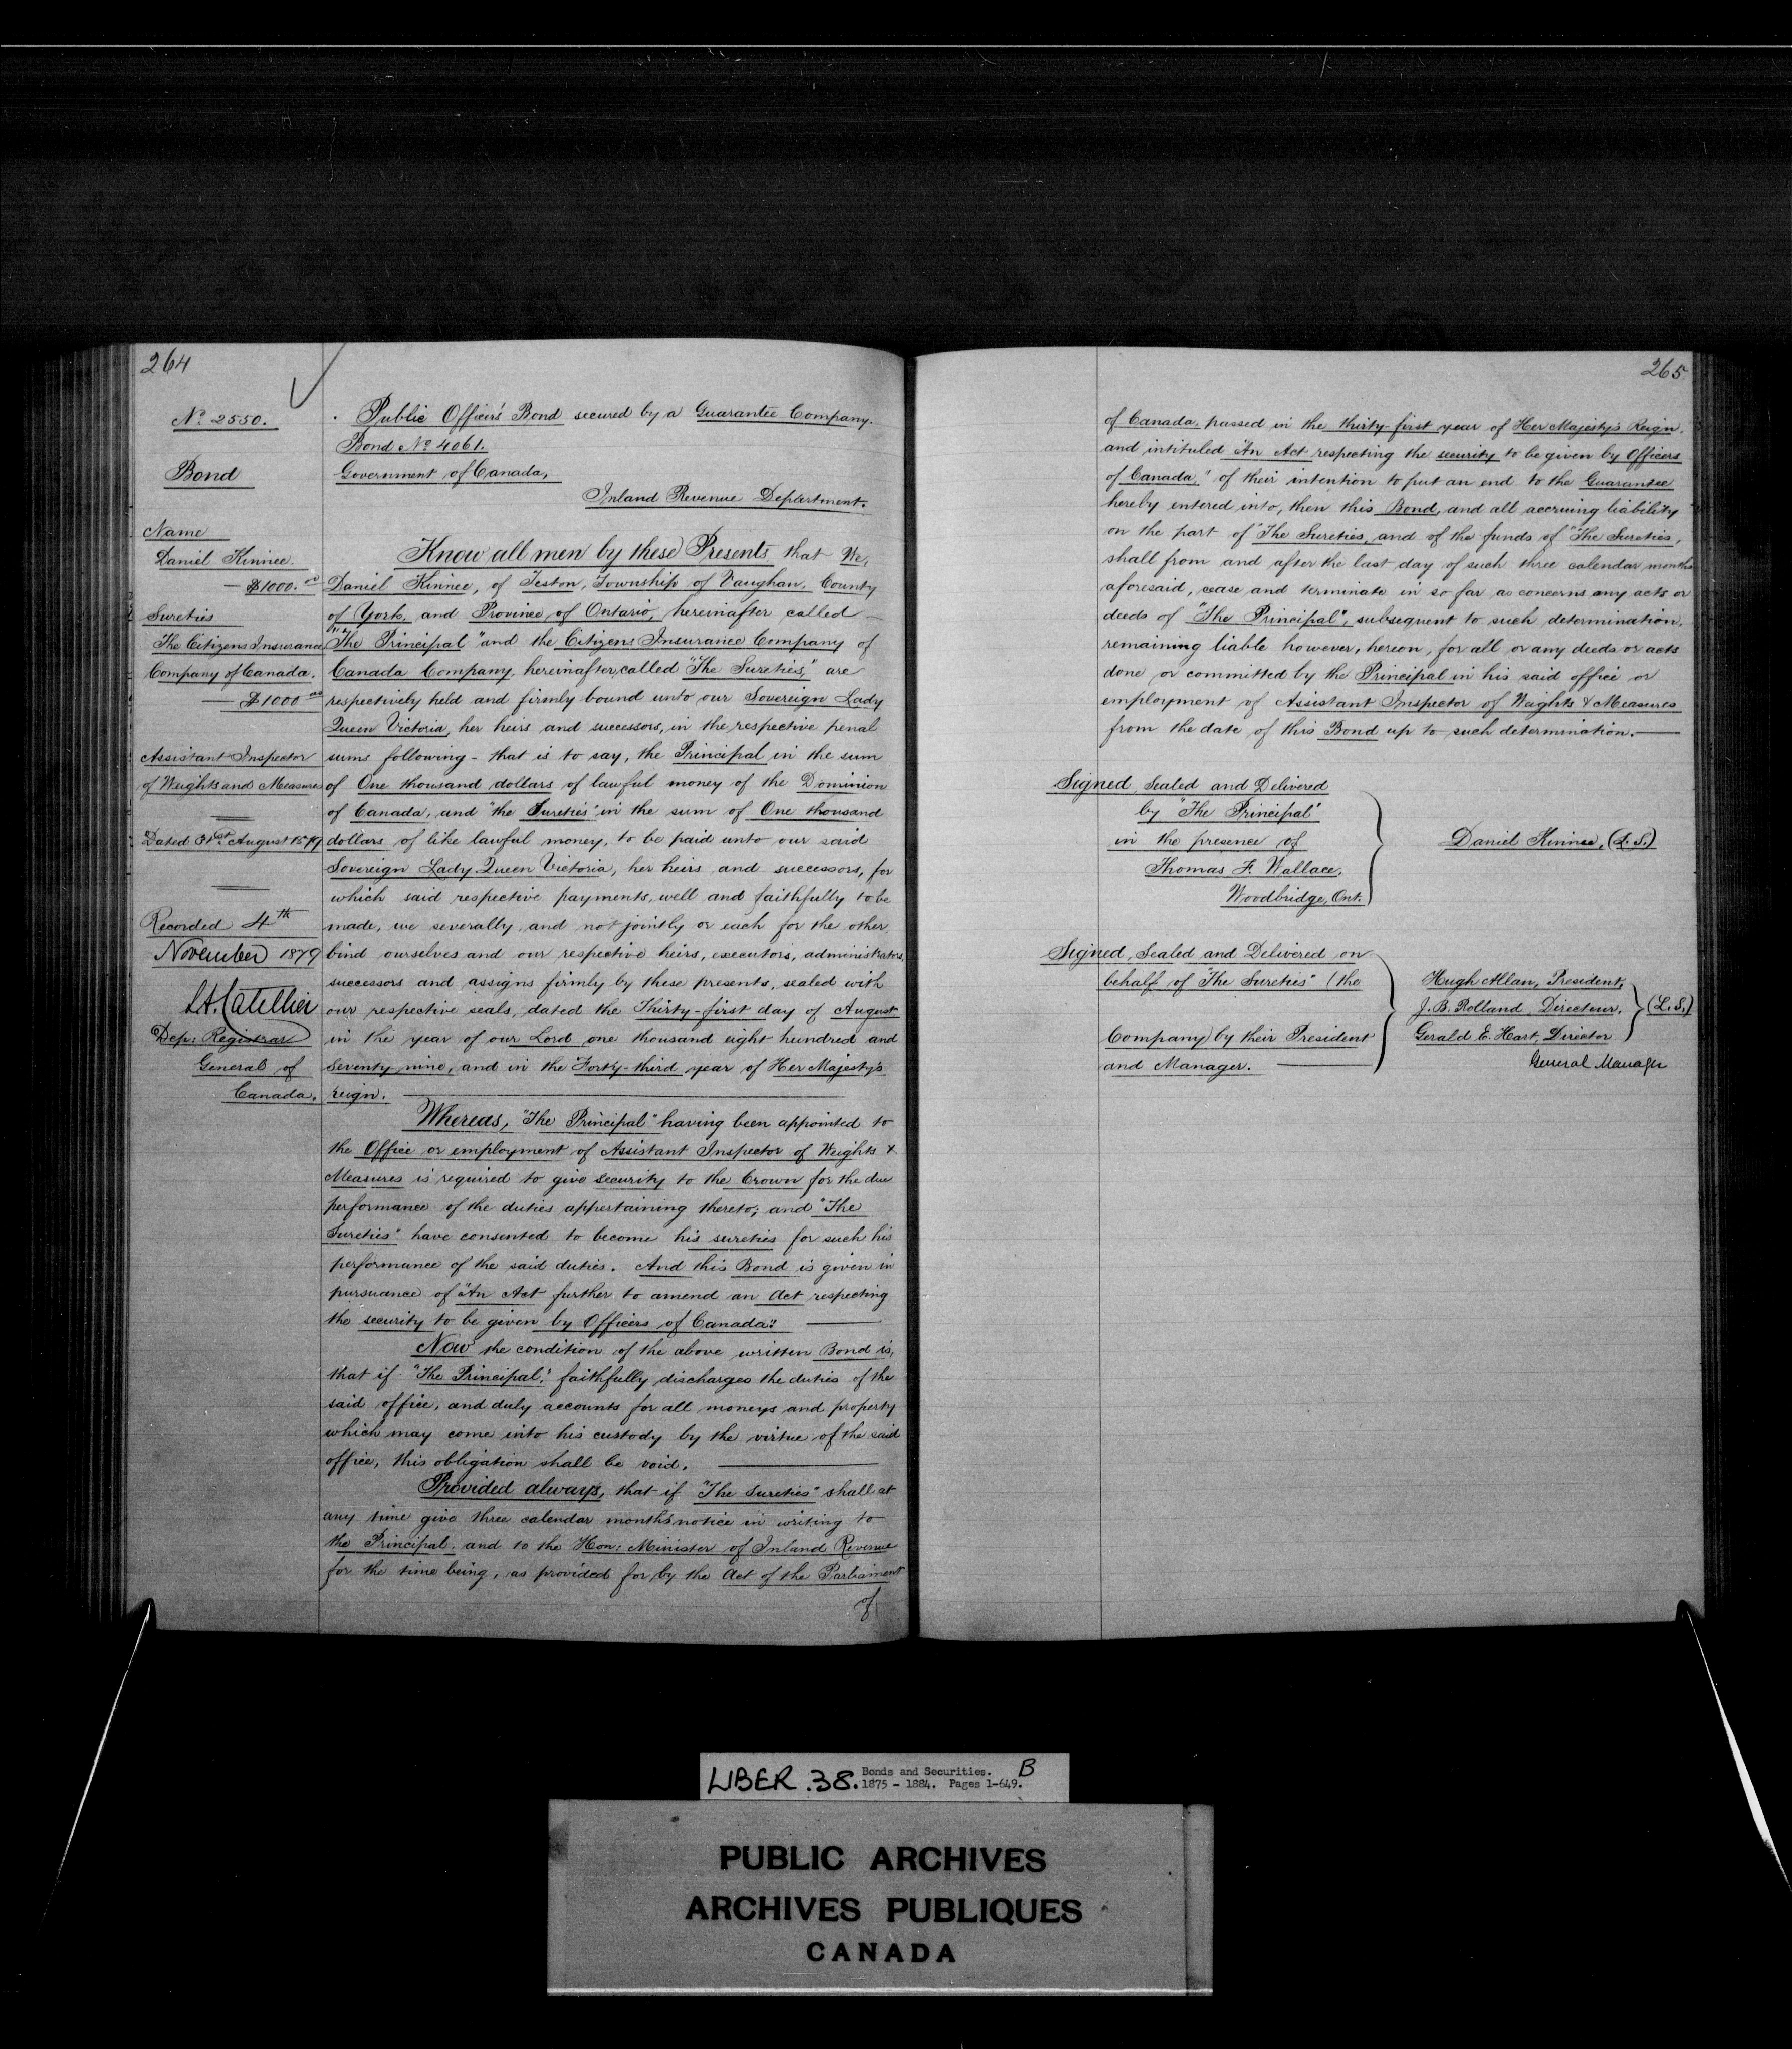 264
No 2550.
Bond
Name
Daniel Kinnee.
— $1000.00
Sureties
The Citizens Insurance
Company of Canada.
— $1000.00
Assistant Inspector
of Weights and Measures
Dated 31st August 1879
Recorded 4th
November 1879
L.A. Catellier
Dep: Registrar
General of
Canada.
Public Officer's Bond secured by a Guarantee Company.
Bond No 4061.
Government of Canada,
Inland Revenue Department.
Know all men by these Presents that We,
Daniel Kinnee, of Teston, Township of Vaughan, County
of York, and Province of Ontario, hereinafter called —
"The Principal" and the Citizens Insurance Company of
Canada Company, hereinafter called "The Sureties," are
respectively held and firmly bound unto our Sovereign Lady
Queen Victoria, her heirs and successors, in the respective penal
sums following - that is to say, the Principal in the sum
of One thousand dollars of lawful money of the Dominion
of Canada, and "the Sureties" in the sum of One thousand
dollars of like lawful money, to be paid unto our said
Sovereign Lady Queen Victoria, her heirs and successors, for
which said respective payments, well and faithfully to be
made, we severally, and not jointly or each for the other,
bind ourselves and our respective heirs, executors, administrators,
successors and assigns firmly by these presents, sealed with
our respective seals, dated the Thirty-first day of August
in the year of our Lord one thousand eight hundred and
seventy nine, and in the Forty-third year of Her Majesty's
reign.
Whereas, "The Principal" having been appointed to
the Office or employment of Assistant Inspector of Weights &
Measures is required to give security to the Crown for the due
performance of the duties appertaining thereto; and "The
Sureties" have consented to become his sureties for such his
performance of the said duties. And this Bond is given in
pursuance of "An Act further to amend an Act respecting
the security to be given by Officers of Canada."
Now the condition of the above written Bond is,
that if "The Principal," faithfully discharges the duties of the
said office, and duly accounts for all moneys and property
which may come into his custody by the virtue of the said
office, this obligation shall be void.
Provided always, that if "The Sureties" shall at
any time give three calendar months' notice in writing to
the Principal, and to the Hon: Minister of Inland Revenue
for the time being, as provided for by the Act of the Parliament
of
265
of Canada, passed in the thirty-first year of Her Majesty's Reign,
and intituled "An Act respecting the security to be given by Officers
of Canada," of their intention to put an end to the Guarantee
hereby entered into, then this Bond, and all accruing liability
on the part of "The Sureties, and of the funds of "The Sureties,
shall from and after the last day of such three calendar months
aforesaid, cease and terminate in so far as concerns any acts or
deeds of "The Principal", subsequent to such determination,
remaining liable however, hereon, for all or any deeds or acts
done or committed by the Principal in his said office or
employment of Assistant Inspector of Weights & Measures
from the date of this Bond up to such determination. —
Signed, Sealed and Delivered
by "The Principal"
in the presence of
Thomas F. Wallace,
Woodbridge, Ont.
Daniel Kinnee, (L.S.)
Signed, Sealed and Delivered on
behalf of "The Sureties" (the
Company) by their President
and Manager. —
Hugh Allan, President,
J. B. Rolland, Directeur,
Gerald E. Hart, Director
General Manager
(L.S.)
LIBER .38. Bonds and Securities. B
1875 - 1884. Pages 1-649.
PUBLIC ARCHIVES
ARCHIVES PUBLIQUES
CANADA